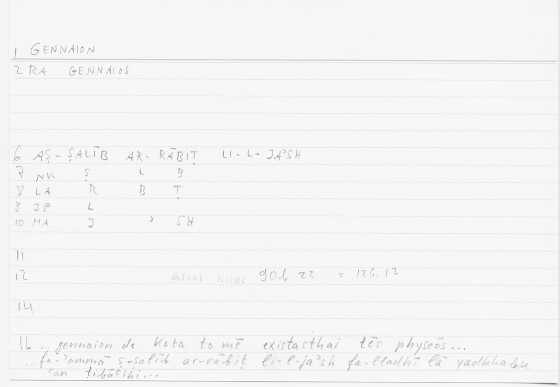 1 GENNAION
2 RA GENNAIOS
6 AṢ-ṢALĪB AR-RĀBIṬ LI-L-JAʾSH
7 NU Ṣ L B
8 LA R B Ṭ
9 JP L
10 MA J ʾ SH
11
12 Arist. 906 22 = 126.12
14
16 .. gennaion de kata to mē existasthai tēs physeōs...
.. fa-ʾammā ṣ-ṣalīb ar-rābiṭ li-l-jaʾsh fa-lladhī lā yadhhabu
ʿan ṭibāʿihi...